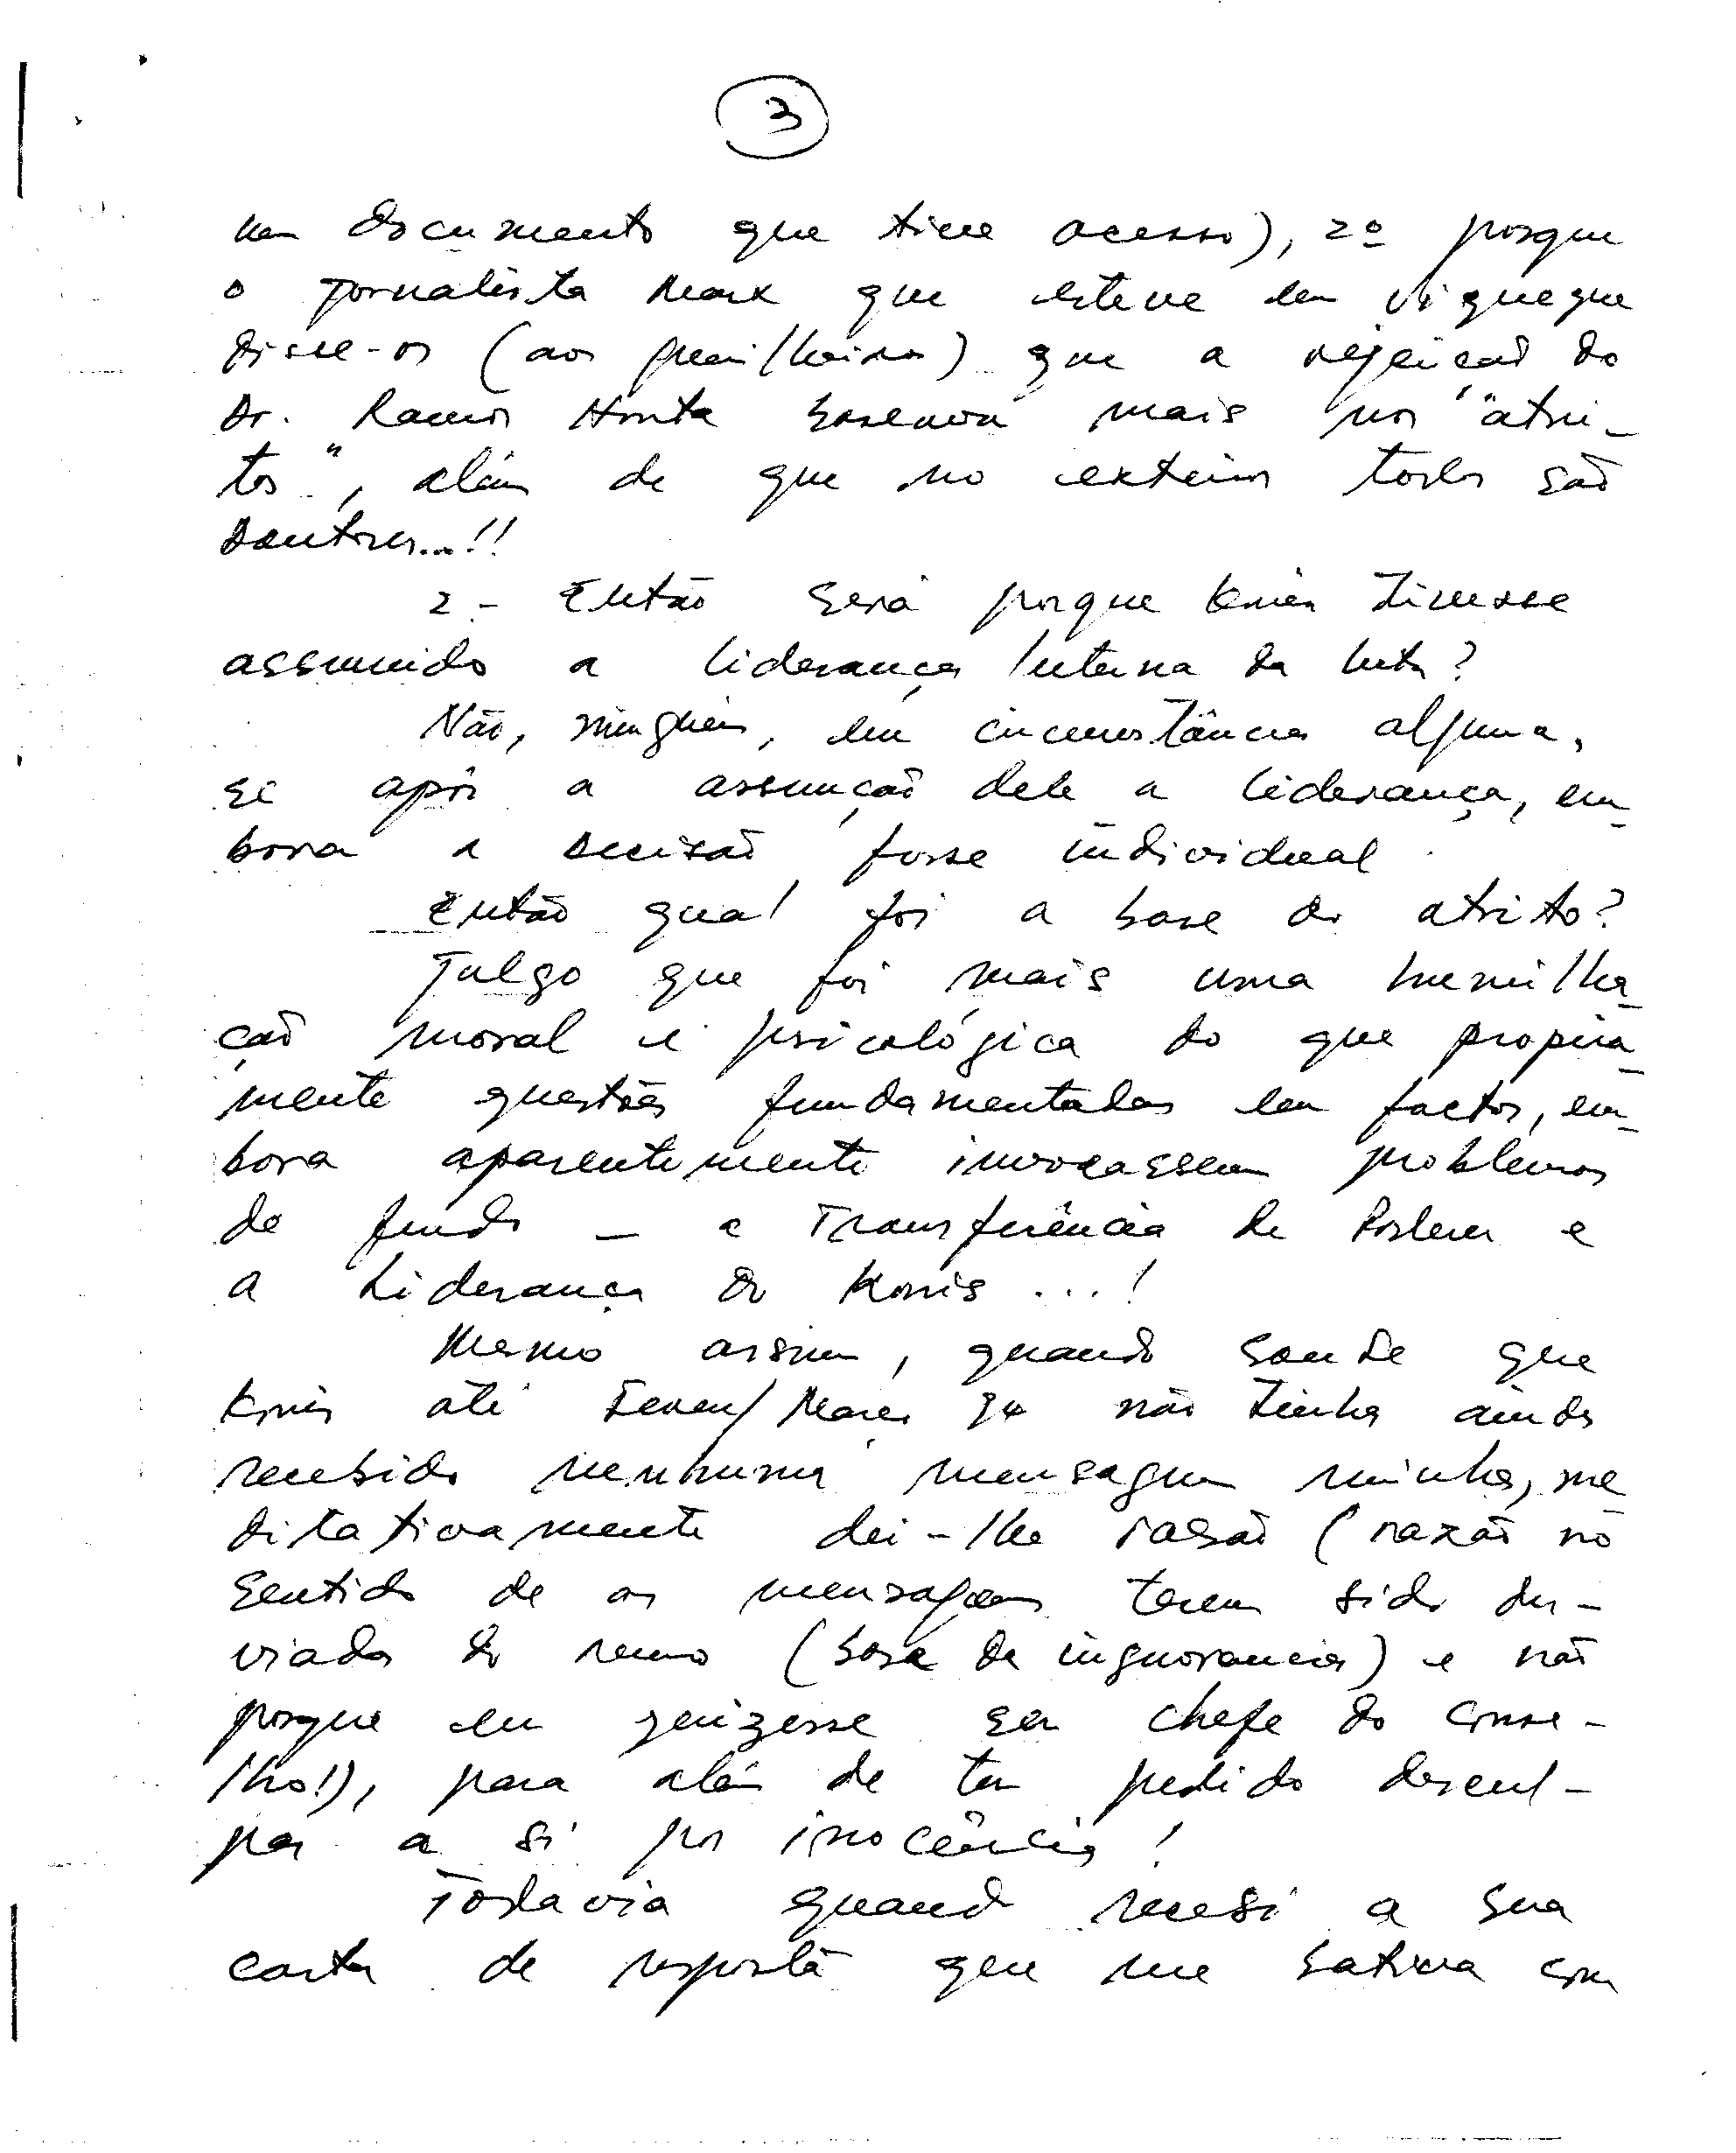 3
num documento que tive acesso), 2º porque
o jornalista Mark que esteve em Viqueque
disse-os (ao guerrilheiros) que a rejeição do
Dr. Ramos Horta baseava mais nos "atri-
tos", além de que no exterior todos são
Doutores...!!
2 - Então será porque Konis tivesse
assumido a liderança Interna da luta?
Não, ninguém, em circunstância alguma,
se após a assunção dele a liderança, em-
bora a decisão fosse individual.
Então qual foi a base do atrito?
Julgo que foi mais uma humilha-
ção moral e psicológica do que propria-
mente questões fundamentadas em factos, em-
bora aparentemente invocassem problemas
de fundo - a Transferência de Poderes e
a Liderança do Konis ...!
Mesmo assim, quando soube que
Konis até Fever/Março 94 não tinha ainda
recebido nenhuma mensagem minha, me-
ditativamente dei-lhe razão (razão no
sentido de as mensagens terem sido des-
viadas do rumo (base da ingnorancia) e não
porque eu quizesse ser chefe do Conse-
lho!), para além de ter pedido descul-
pas a si por inocência!
Todavia quando recebi a sua
carta de resposta que me batera com